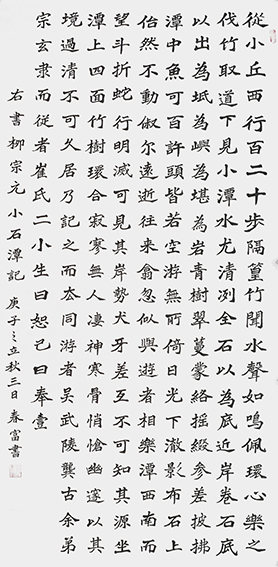 從小丘西行百二十步隔篁竹聞水聲如鳴佩環心樂之
伐竹取道下見小潭水尤清冽全石以為底近岸卷石底
以出為坻為嶼為堪為岩青樹翠蔓蒙絡搖綴參差披拂
潭中魚可百許頭皆若空游無所倚日光下澈影布石上
佁然不動俶尔遠逝往來翕忽似與遊者相樂潭西南而
望斗折蛇行明滅可見其岸勢犬牙差互不可知其源坐
潭上四面竹樹環合寂寥無人凄神寒骨悄愴幽邃以其
境過清不可久居乃記之而去同游者吳武陵龔古余弟
宗玄隶而從者崔氏二小生曰恕己曰奉壹
右書柳宗元小石潭記庚子之立秋三日春富書